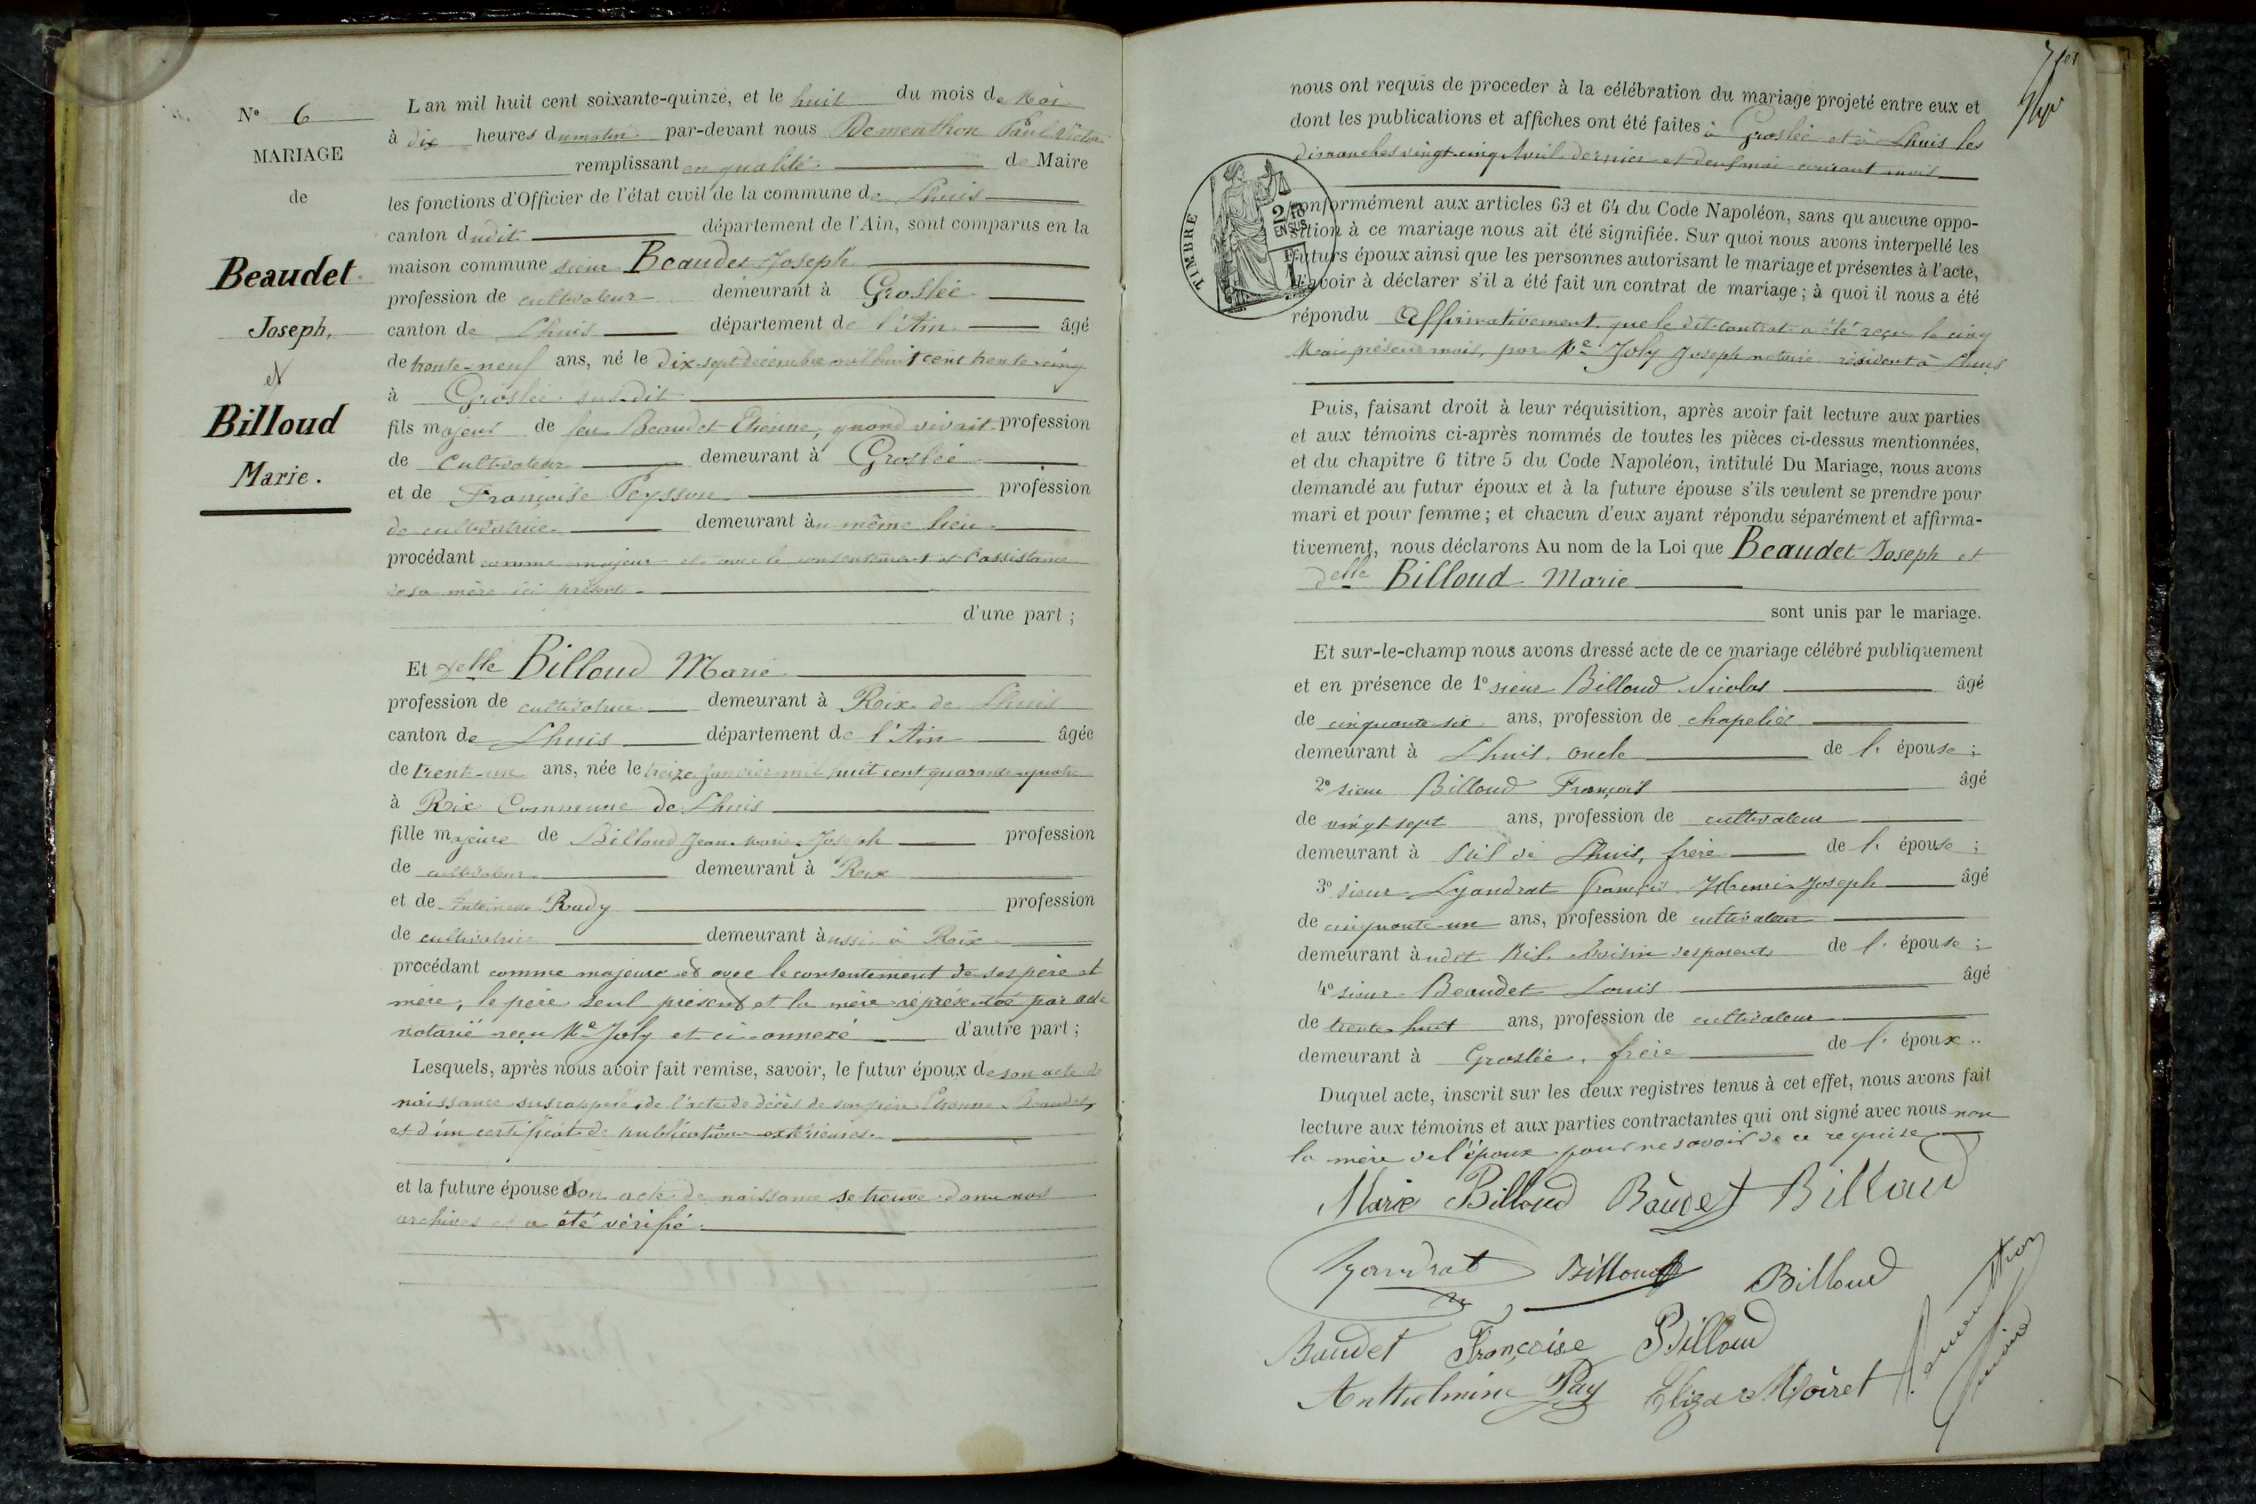 N° 6
MARIAGE
de
Beaudet
Joseph,
et
Billoud
Marie.
L'an mil huit cent soixante-quinze, et le huit du mois de Mai
à dix heures du matin par-devant nous Dementhon Paul Victor
remplissant en qualité de Maire
les fonctions d'Officier de l'état civil de la commune de Lhuis
canton dudit département de l'Ain, sont comparus en la
maison commune sieur Beaudet Joseph
profession de cultivateur demeurant à Groslée
canton de Lhuis département de l'Ain âgé
de trente-neuf ans, né le dix-sept décembre mil huit cent trente-cinq
à Groslée susdit
fils majeur de feu Beaudet Etienne, quand vivait profession
de cultivateur demeurant à Groslée
et de Françoise Peysson profession
de cultivatrice demeurant au même lieu
procédant comme majeur et avec le consentement et l'assistance
de sa mère ici présente
d'une part ;
Et delle Billoud Marie
profession de cultivatrice demeurant à Rix de Lhuis
canton de Lhuis département de l'Ain âgée
de trent-un ans, née le treize janvier mil huit cent quarante-quatre
à Rix Commune de Lhuis
fille majeure de Billoud Jean-Marie-Joseph profession
de cultivateur demeurant à Rix
et de Antoinette Rudy profession
de cultivatrice demeurant aussi à Rix
procédant comme majeure et avec le consentement de ses père et
mère, le père seul présent et la mère représentée par acte
notarié reçu Me Joly et ci-annexé d'autre part ;
Lesquels, après nous avoir fait remise, savoir, le futur époux de son acte de
naissance susrappelé, de l'acte de décès de son père Etienne Beaudet,
et d'un certificat de publication extérieure
et la future épouse dont acte de naissance se trouve dans nos
archives et a été vérifié
nous ont requis de proceder à la célébration du mariage projeté entre eux et
dont les publications et affiches ont été faites à Groslée et à Lhuis les
dimanches vingt-cinq Avril dernier et deux mai courant mois
TIMBRE
2/10
EN SUS
conformément aux articles 63 et 64 du Code Napoléon, sans qu'aucune oppo-
sition à ce mariage nous ait été signifiée. Sur quoi nous avons interpellé les
futurs époux ainsi que les personnes autorisant le mariage et présentes à l'acte,
d'avoir à déclarer s'il a été fait un contrat de mariage ; à quoi il nous a été
répondu Affirmativement que le dit contrat a été reçu le cinq
Mai présent mois, par Me Joly Joseph notaire résidant à Lhuis
Puis, faisant droit à leur réquisition, après avoir fait lecture aux parties
et aux témoins ci-après nommés de toutes les pièces ci-dessus mentionnées,
et du chapitre 6 titre 5 du Code Napoléon, intitulé Du Mariage, nous avons
demandé au futur époux et à la future épouse s'ils veulent se prendre pour
mari et pour femme ; et chacun d'eux ayant répondu séparément et affirma-
tivement, nous déclarons Au nom de la Loi que Beaudet Joseph et
delle Billoud Marie
sont unis par le mariage.
Et sur-le-champ nous avons dressé acte de ce mariage célébré publiquement
et en présence de 1° sieur Billoud Nicolas âgé
de cinquante-six ans, profession de chapelier
demeurant à Lhuis, oncle de l'épouse ;
2° sieur Billoud François âgé
de vingt sept ans, profession de cultivateur
demeurant à de Lhuis, frère de l'épouse ;
3° sieur Lyandrat François Henri Joseph âgé
de cinquante-un ans, profession de cultivateur
demeurant audit voisin des parents de l'épouse ;
4° sieur Beaudet Louis âgé
de trente huit ans, profession de cultivateur
demeurant à Groslée, frère de l'époux..
Duquel acte, inscrit sur les deux registres tenus à cet effet, nous avons fait
lecture aux témoins et aux parties contractantes qui ont signé avec nous non
la mère de l'époux pour ne savoir de ce requise
Marie Billoud Baudet Billoud
Lyandrat Billoud Billoud
Baudet Françoise Billoud
Anthelmine Pay Eliza Moiret